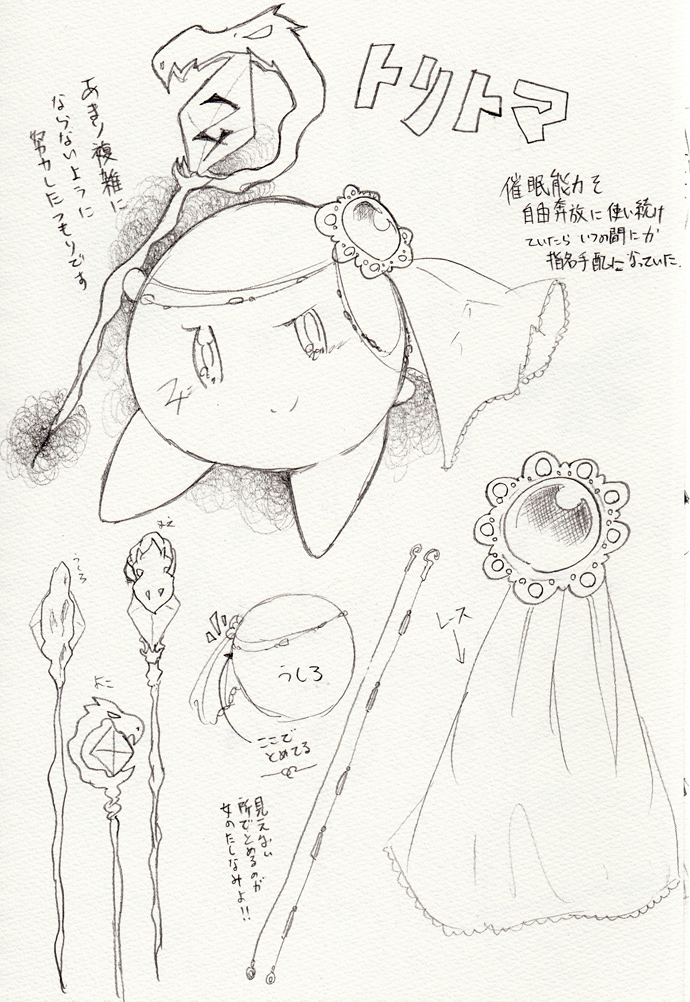 トリトマ
催眠能力を
自由奔放に使い続け
ていたら いつの間にか
指名手配になっていた.
あまり複雑に
ならないように
努力したつもりです
うしろ
まえ
よこ
うしろ
ここで
とめてる
レース
見えない
所でとめるのが
女のたしなみよ!!